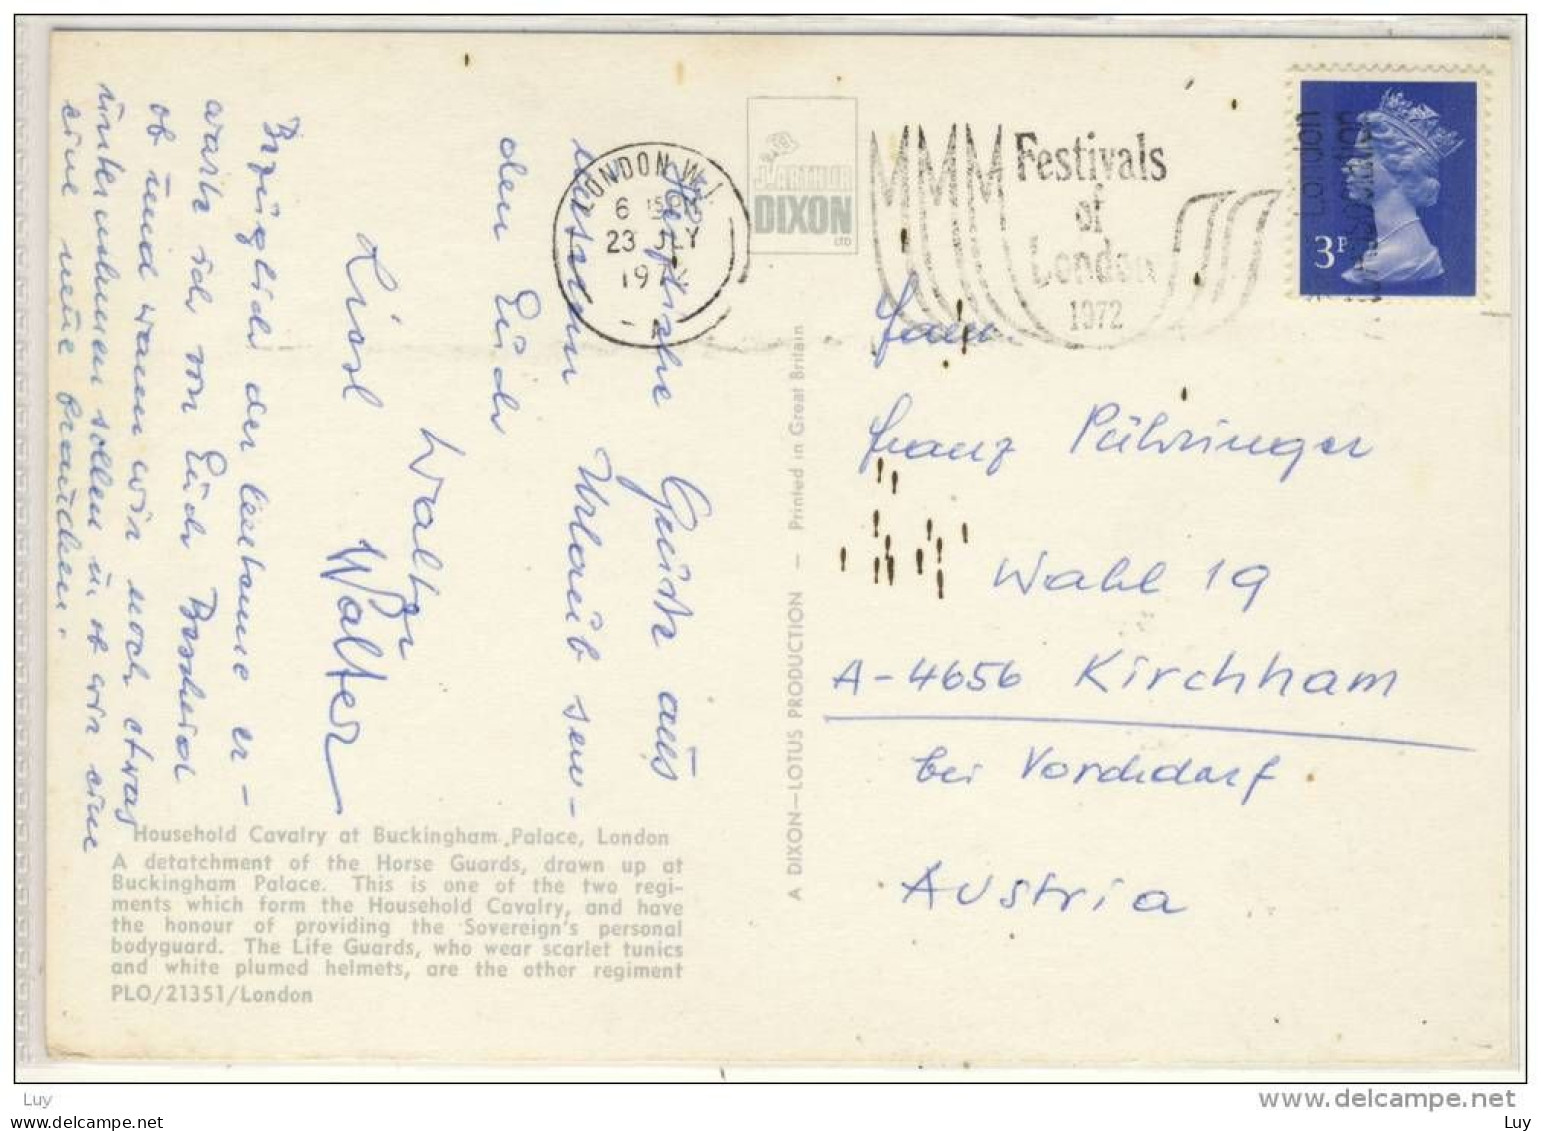 Herzliche Grüße aus
unserem Urlaub sen-
den Euch
Walter
Liesl Walter
Bezüglich der Leitarne er-
warte ich von Euch Bescheid
ob und wann wir noch etwas
unternehmen sollen u. ob wir eine
eine neue brauchen.
Household Cavalry at Buckingham Palace, London
A detatchment of the Horse Guards, drawn up at
Buckingham Palace. This is one of the two regi-
ments which form the Household Cavalry, and have
the honour of providing the Sovereign's personal
bodyguard. The Life Guards, who wear scarlet tunics
and white plumed helmets, are the other regiment
PLO/21351/London
J. ARTHUR
DIXON
LTD
A DIXON—LOTUS PRODUCTION — Printed in Great Britain
LONDON W.1
6 15 PM
23 JLY
1972
A
Festivals
of
London
1972
London
3P
Fam.
Franz Pühringer
Wahl 19
A-4656 Kirchham
bei Vorchdorf
Austria
Luy
Luy
www.delcampe.net
Luy
www.delcampe.net
Luy